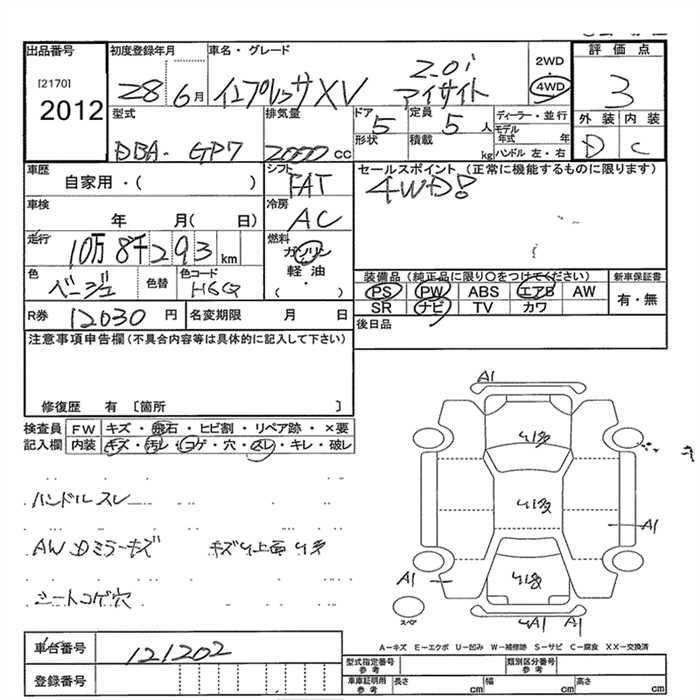 出品番号
[2170]
2012
初度登録年月
28 6月
車名・グレード
インプレッサXV 2.0i
アイサイト
2WD
・
4WD
評価点
3
外装 内装
D C
型式
DBA-GP7
排気量
2000 cc
ドア
5
形状
定員
5 人
積載
kg
ディーラー・並行
モデル
年式 年
ハンドル 左・右
車歴
自家用・( )
シフト
FAT
セールスポイント (正常に機能するものに限ります)
4WD!
車検
年 月( 日)
冷房
AC
走行
10万8千293 km
燃料
ガソリン
軽油
・
( )
色
ベージュ
色替
色コード
H6Q
装備品 (純正品に限り○をつけてください)
PS PW ABS エアB AW
SR ナビ TV カワ
新車保証書
有・無
R券 12030 円
名変期限 月 日
後日品
注意事項申告欄 (不具合内容等は具体的に記入して下さい)
修復歴 有 〔箇所 〕
検査員 FW キズ・飛石・ヒビ割・リペア跡・×要
記入欄 内装 キズ・汚レ・コゲ・穴・スレ・キレ・破レ
ハンドルスレ
AW Dミラーキズ
シートコゲ穴
A1
A1
A1
A1 A1
スペア
A−キズ E−エクボ U−凹み W−補修跡 S−サビ C−腐食 XX−交換済
車台番号 121202
登録番号
型式指定番号
類別区分番号
参考
参考
車庫証明用
参考
長さ cm 幅 cm 高さ cm